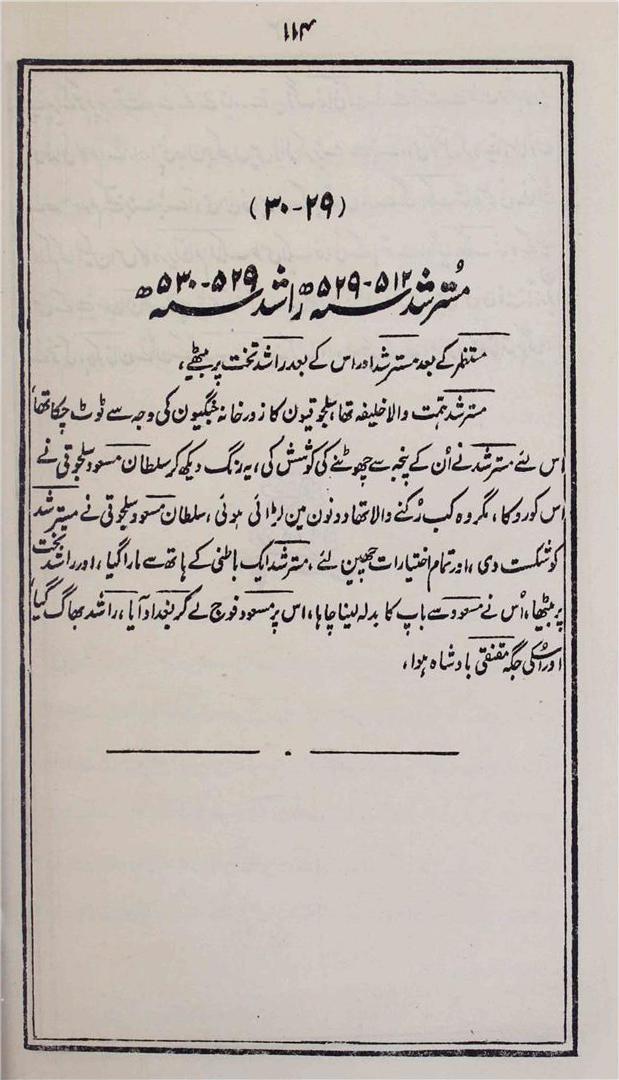 ۱۱۴
(۲۹-۳۰)
مُسترشد ۵۱۲-۵۲۹ھ راشد ۵۲۹-۵۳۰ھ
مستظہر کے بعد مسترشد اور اس کے بعد راشد تخت پر بیٹھے،
مسترشد ہمت والا خلیفہ تھا، سلجوقیون کا زور خانہ جنگیون کی وجہ سے ٹوٹ چکا تھا،
اس لئے مسترشد نے اُن کے پنجہ سے چھوٹنے کی کوشش کی، یہ رنگ دیکھ کر سلطان مسعود سلجوقی نے
اس کو روکا، مگر وہ کب رُکنے والا تھا، دونون مین لڑائی ہوئی، سلطان مسعود سلجوقی نے مسترشد
کو شکست دی، اور تمام اختیارات چھین لئے، مسترشد ایک باطنی کے ہاتھ سے مارا گیا، اور راشد تخت
پر بیٹھا، اُس نے مسعود سے باپ کا بدلہ لینا چاہا، اس پر مسعود فوج لے کر بغداد آیا، راشد بھاگ گیا،
اور اُسکی جگہ مقتفی بادشاہ ہوا،